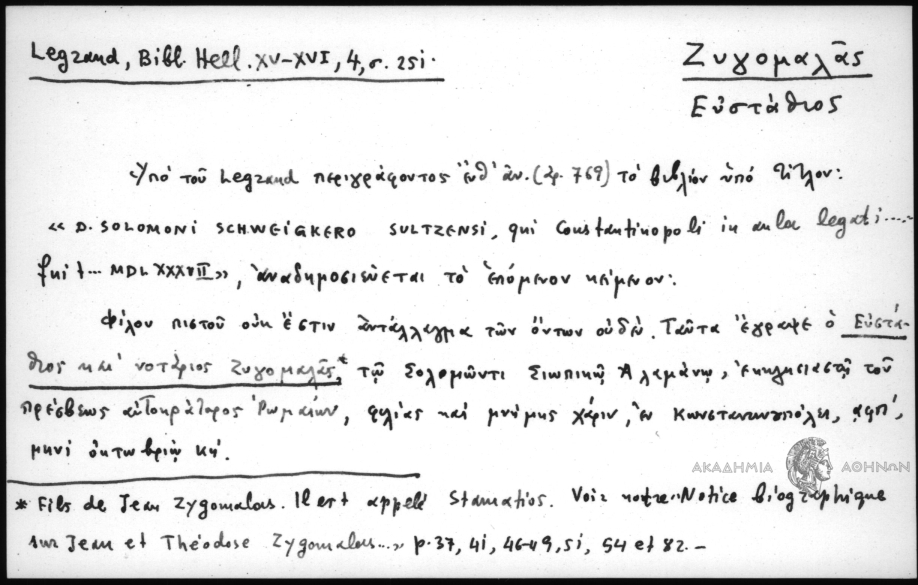 Legrand, Bibl. Hell. XV-XVI, 4, σ. 251.
Ζυγομαλᾶς
Εὐστάθιος
Ὑπό τοῦ Legrand περιγράφοντος ἐνθ' ἀν. (ἀρ. 769) τό βιβλίον ὑπό τίτλον:
« D. SOLOMONI SCHWEIGKERO SULTZENSI, qui Constantinopoli in aula legati.....
fuit... MDLXXXVII», ἀναδημοσιεύεται τό ἑπόμενον κείμενον:
Φίλου πιστοῦ οὐκ ἔστιν ἀντάλλαγμα τῶν ὄντων οὐδέν. Ταῦτα ἔγραψε ὁ Εὐστά-
θιος καί νοτάριος Ζυγομαλᾶς,* τῷ Σολομῶντι Σιωπικῷ Ἀλαμάνῳ, ἐκκλησιαστῇ τοῦ
πρέσβεως αὐτοκράτορος Ῥωμαίων, φιλίας καί μνήμης χάριν, ἐν Κωνσταντινουπόλει, ͵αφπ',
μηνί ὀκτωβρίῳ κή.
ΑΚΑΔΗΜΙΑ ΑΘΗΝΩΝ
* Fils de Jean Zygomalas. Il est appelé Stamatios. Voir notre "Notice biographique
sur Jean et Théodose Zygomalas...» p. 37, 41, 46-49, 51, 54 et 82. -